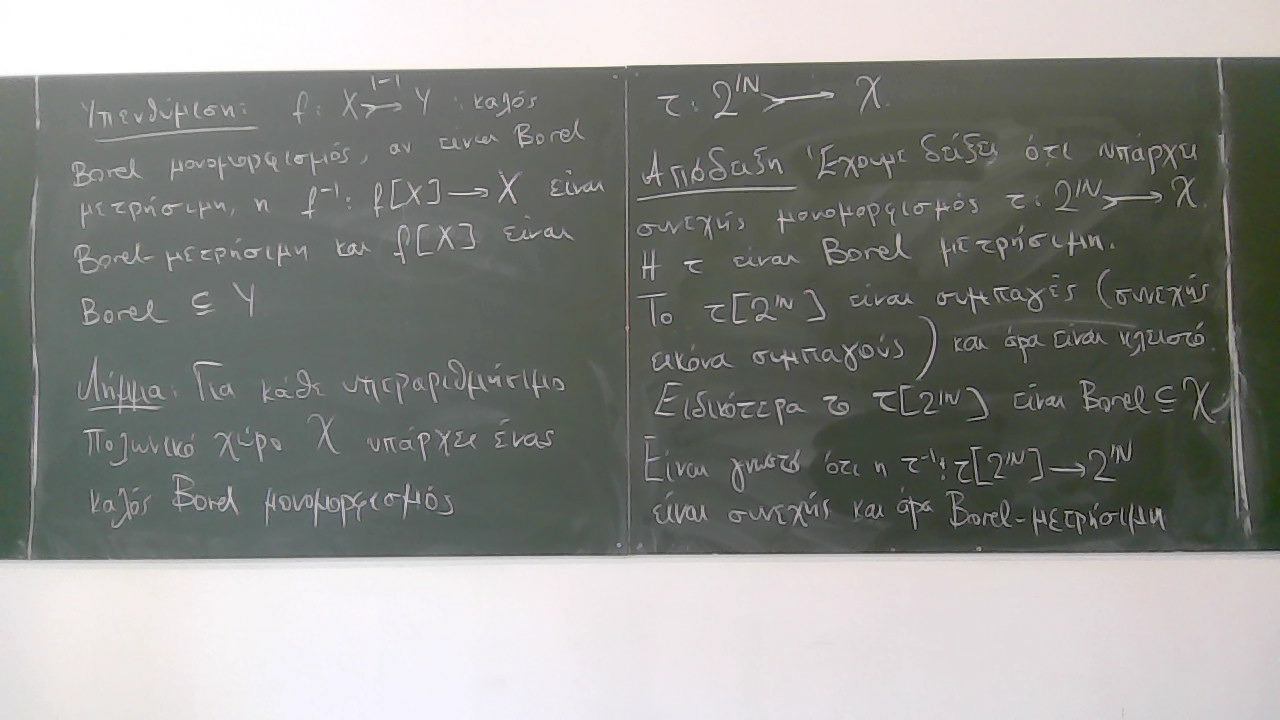 Υπενθύμιση: f: X ↣ Y : καλός
1-1
Borel μονομορφισμός, αν είναι Borel
μετρήσιμη, η f⁻¹: f[X] → X είναι
Borel-μετρήσιμη και f[X] είναι
Borel ⊆ Y
Λήμμα: Για κάθε υπεραριθμήσιμο
Πολωνικό χώρο X υπάρχει ένας
καλός Borel μονομορφισμός
τ: 2^ℕ ↣ X.
Απόδειξη Έχουμε δείξει ότι υπάρχει
συνεχής μονομορφισμός τ: 2^ℕ ↣ X.
Η τ είναι Borel μετρήσιμη.
Το τ[2^ℕ] είναι συμπαγές (συνεχής
εικόνα συμπαγούς) και άρα είναι κλειστό.
Ειδικότερα το τ[2^ℕ] είναι Borel ⊆ X
Είναι γνωστό ότι η τ⁻¹: τ[2^ℕ] → 2^ℕ
είναι συνεχής και άρα Borel-μετρήσιμη